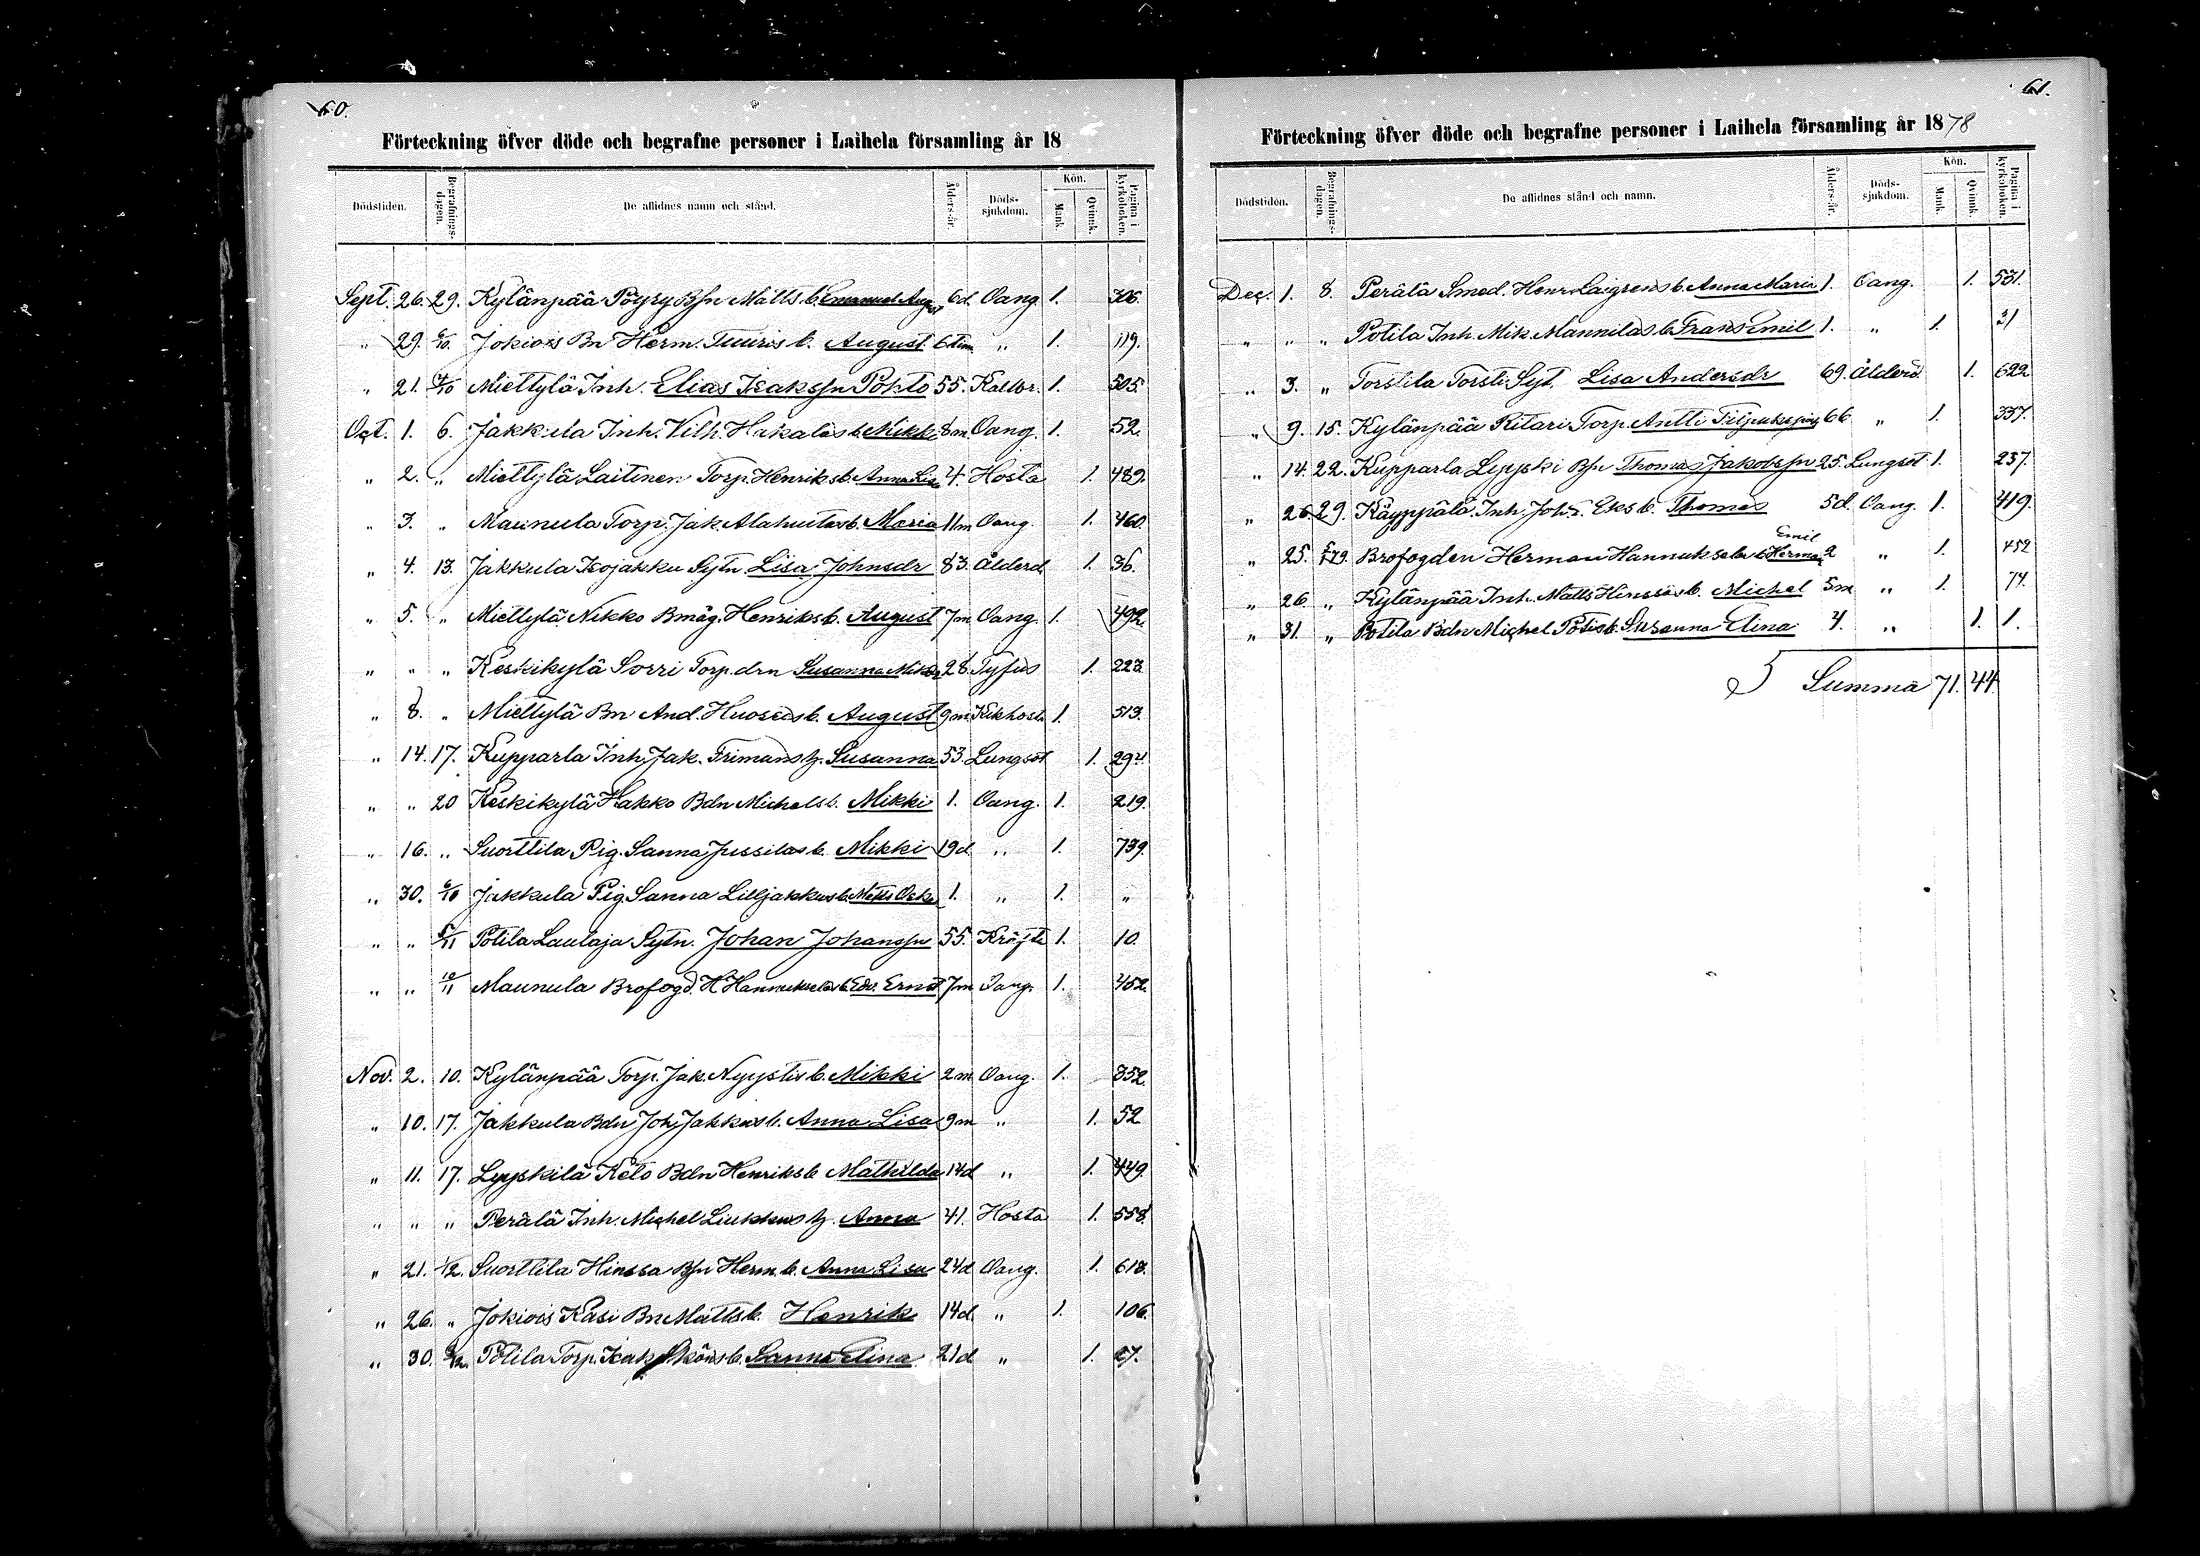 60.
Förteckning öfver döde och begrafne personer i Laihela församling år 18
Dödstiden. Begrafnings-dagen. De aflidnes namn och stånd. Ålders-år. Döds-sjukdom. Kön. Mank. Qvinnk. Pagina i kyrkoboken.
Sept. 26. 29. Kylänpää Pöyry Bsn Matts b. Emanuel Aug 6d. Oang. 1. 306.
" 29. 6/10. Jokiois Bn Herm. Tuiris b. August 6tim " 1. 119.
" 21. /10 Miettylä Inh. Elias Isakssn Pohto 55. Kallbr. 1. 505.
Oct. 1. 6. Jakkula Inh. Vilh. Hakalas b. Mikki 8m Oang. 1. 52.
" 2. " Miettylä Laitinen Torp. Henriks b. Anna Lisa 4. Hosta 1. 489.
" 3. " Maunula Torp. Jak. Alahuitas b. Maria 11m Oang. 1. 460.
" 4. 13. Jakkula Isojakku Sytn. Lisa Johnsdr 83. Ålderd. 1. 36.
" 5. " Miettylä Nikko Bmåg. Henriks b. August 7m Oang. 1. 492.
" " " Keskikylä Sorri Torp. drn Susanna Mikdr 28. Tyfus 1. 223.
" 8. " Miettylä Bn And. Huosids b. August 9m Kikhosta 1. 513.
" 14. 17. Kupparla Inh. Jak. Frimans h. Susanna 53. Lungsot 1. 294.
" " 20 Keskikylä Hakko Bdn Michels b. Mikki 1. Oang. 1. 219.
" 16. " Suorttila Pig. Sanna Jussilas b. Mikki 19d. " 1. 739.
" 30. 6/10 Jakkula Pig. Sanna Lilljakkus b. Matts Osk. 1. " 1. "
" " 5/11 Potila Laulaja Sytn. Johan Johanssn 55. Kräfta 1. 10.
" " 10/11 Maunula Brofogd. H Hannukselas b. Edv. Ernst 7m Oang. 1. 452.
Nov. 2. 10. Kylänpää Torp. Jak. Nyystis b. Mikki 2m Oang. 1. 352.
" 10. 17. Jakkula Bdn Joh. Jakkus b. Anna Lisa 9m " 1. 52
" 11. 17. Lyyskilä Keto Bdn Henriks b. Mathilda 14d " 1. 449.
" " " Perälä Inh. Michel Liukkus h. Anna 41. Hosta 1. 558.
" 21. 1/12. Suorttila Hinssa Bsn Herm. b. Anna Lisa 24d Oang. 1. 618.
" 26. " Jokiois Kasi Bn Matts b. Henrik 14d. " 1. 106.
" 30. /12. Potila Torp. Isak b. Sanna Elina 21d " 1. 27.
61.
Förteckning öfver döde och begrafne personer i Laihela församling år 1878
Dödstiden. Begrafnings-dagen. De aflidnes stånd och namn. Ålders-år. Döds-sjukdom. Kön. Mank. Qvinnk. Pagina i kyrkoboken.
Dec. 1. 8. Perälä Smed. Henr. Laigrens b. Anna Maria 1. Oang. 1. 531.
" " " Potila Inh. Mik. Mannilas b. Frans Emil 1. " 1. 31
" 3. " Torstila Torsti Syt. Lisa Andersdr 69. Ålderd. 1. 622
" 9. 15. Kylänpää Ritari Torp. Antti 66. " 1. 337.
" 14. 22. Kupparla Lyyski Bsn Thomas Jakobssn 25. Lungsot 1. 237.
" 26. 29. Käyppälä Inh. Joh. Eks b. Thomas 5d. Oang. 1. 419.
" 25. /1 79. Brofogden Herman Hannukselas b. Herman Emil 2 " 1. 452
" 26 " Kylänpää Inh. Matts Hinssas b. Michel 5m " 1. 74.
" 31. " Potila Bdn Michel Potis b. Susanna Elina 4. " 1. 1.
Summa 71. 44.